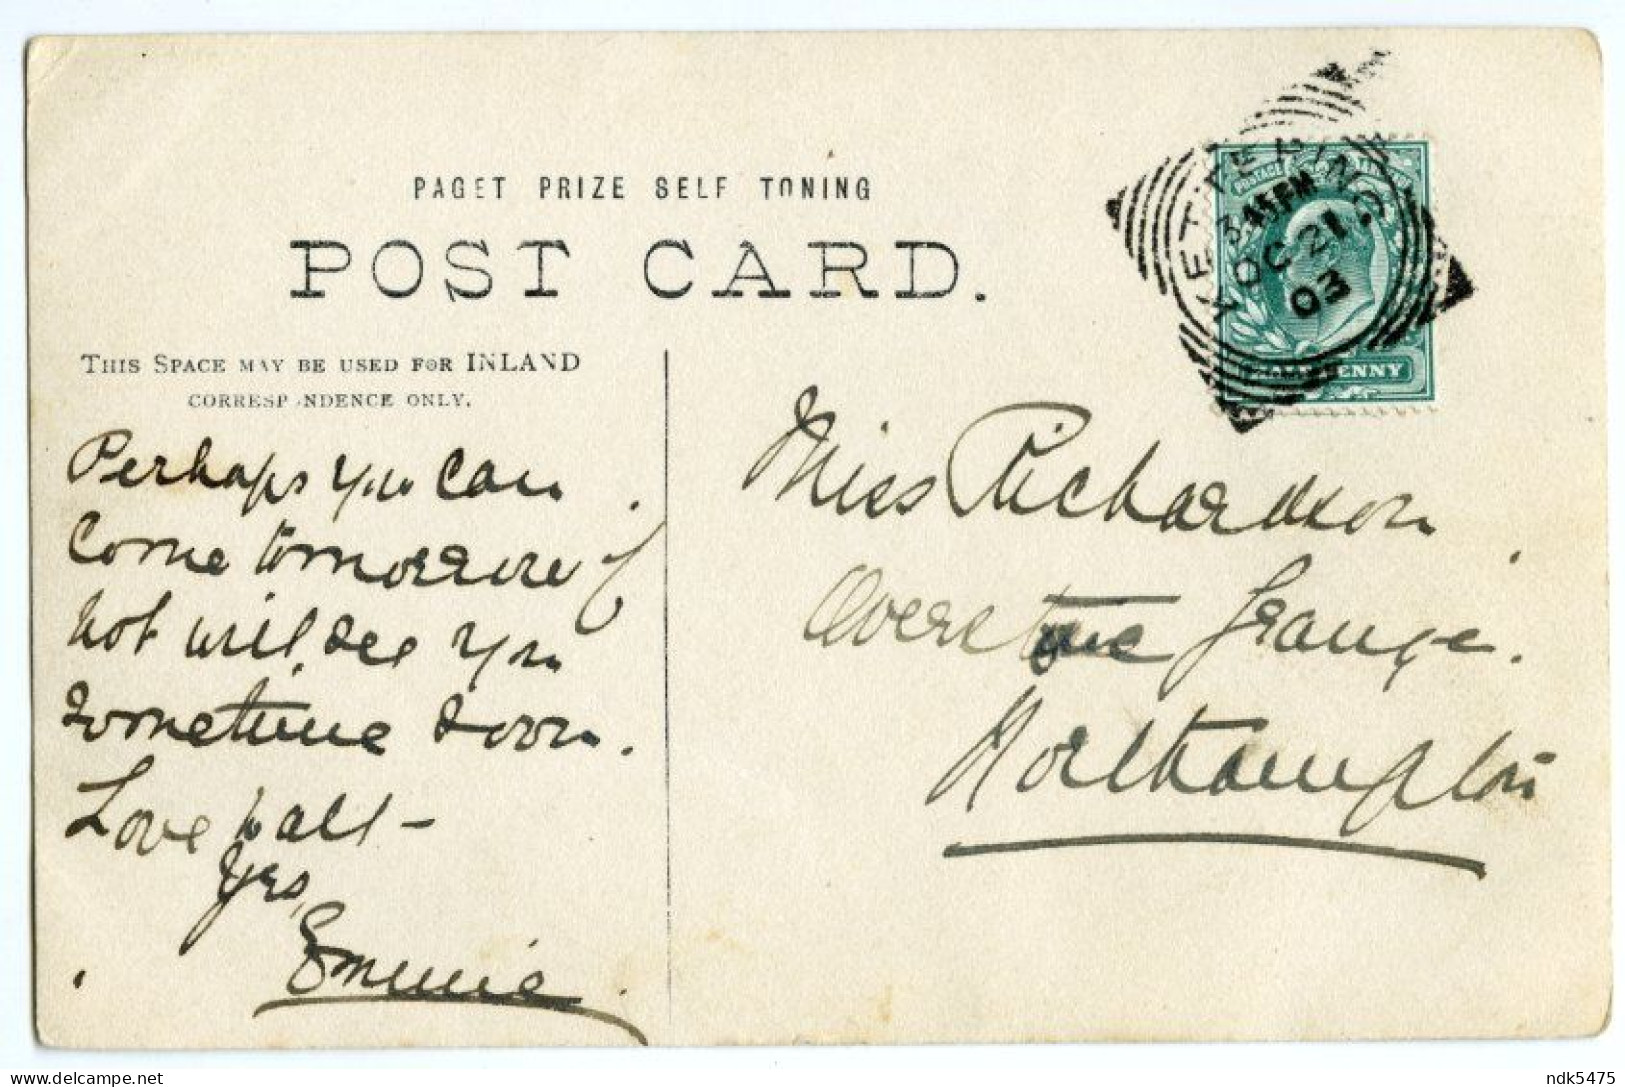 PAGET PRIZE SELF TONING
POST CARD.
THIS SPACE MAY BE USED FOR INLAND
CORRESPONDENCE ONLY.
Perhaps you can
come tomorrow if
not will see you
sometime soon.
Love to all –
Yrs,
Emmie.
KETTERING
3.45PM
OC 21
03
POSTAGE
HALFPENNY
Miss Richardson
Overstone Grange.
Northampton
delcampe.net
ndk5475